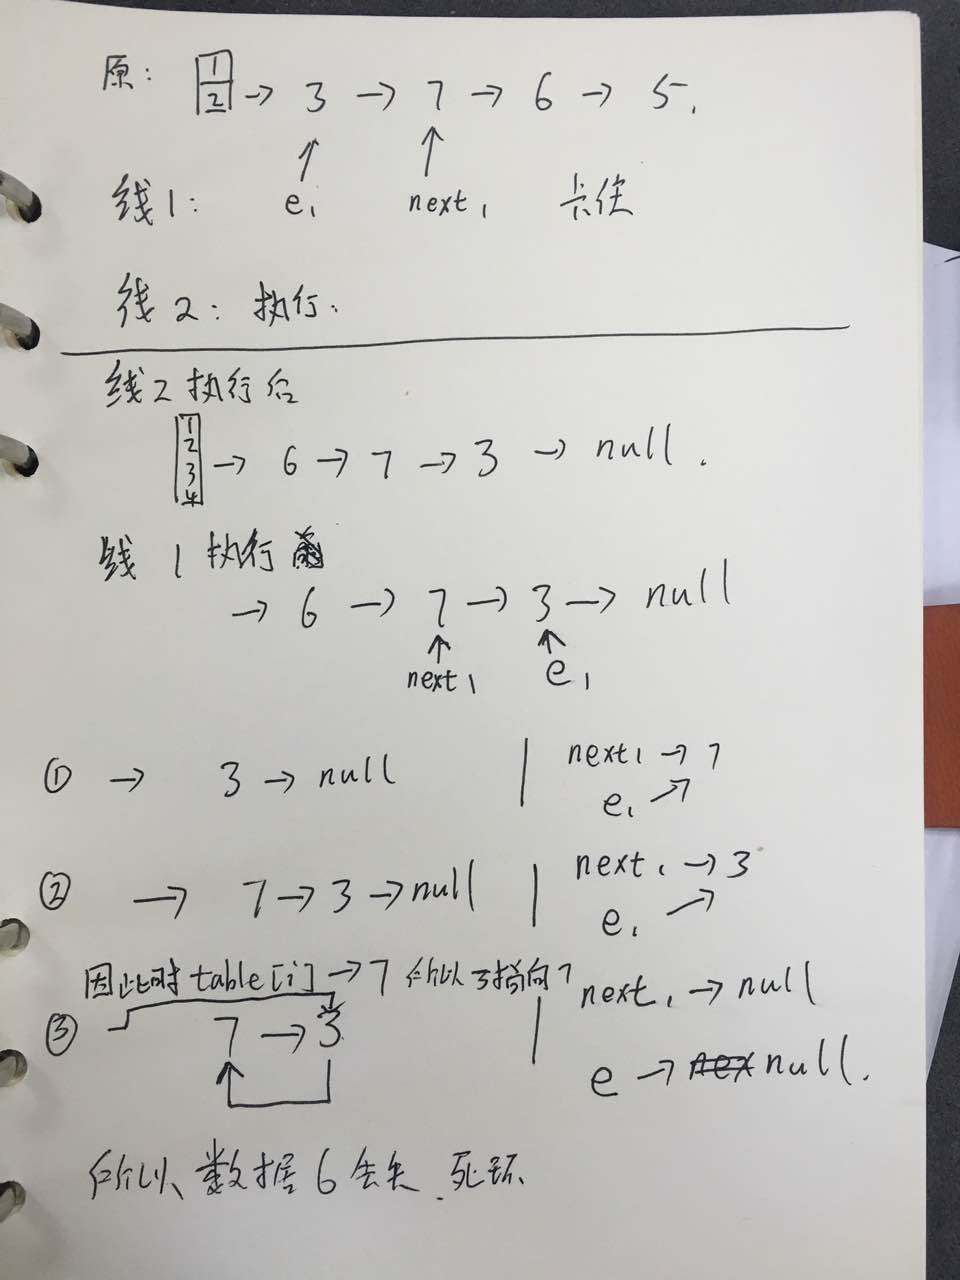 原: 1 2 → 3 → 7 → 6 → 5.
线1: e₁ next₁ 卡住
线2: 执行:
线2执行后
1 2 3 4 → 6 → 7 → 3 → null.
线1执行
→ 6 → 7 → 3 → null
next₁ e₁
① → 3 → null | next₁ → 7
e₁ ↗
② → 7 → 3 → null | next₁ → 3
e₁ ↗
因此时table[i] → 7 所以3指向7
③ 7 → 3 | next₁ → null
e → null.
所以数据6丢失.死环